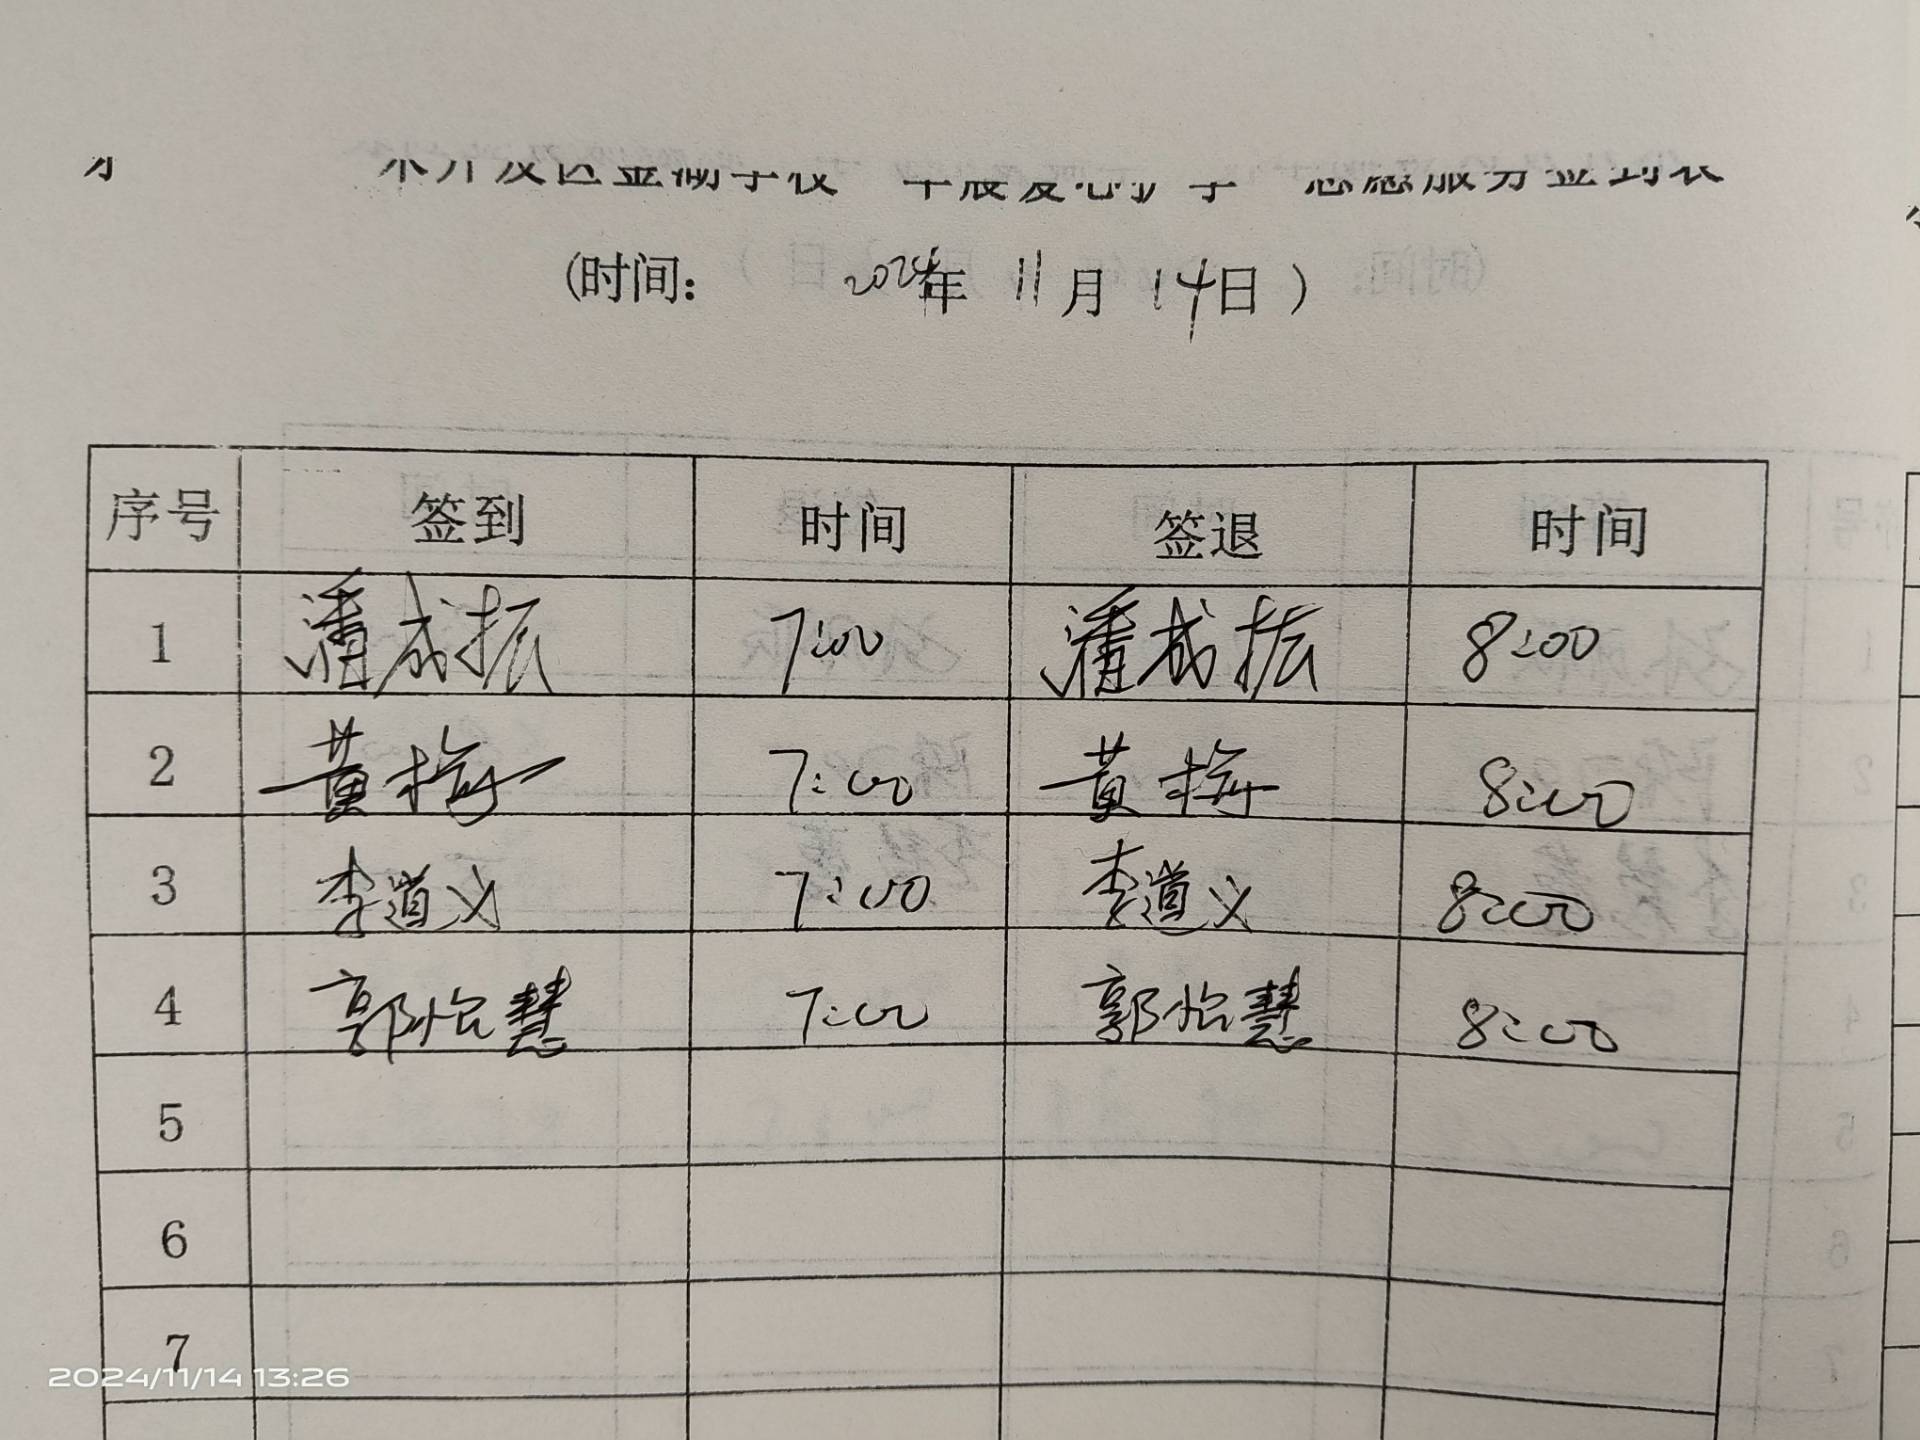 术开发区金湖学校“早晨爱心护学”志愿服务签到表
(时间: 2024年 11月 14日 )
序号 签到 时间 签退 时间
1 潘成振 7:00 潘成振 8:00
2 黄梅 7:00 黄梅 8:00
3 李道义 7:00 李道义 8:00
4 郭怡慧 7:00 郭怡慧 8:00
5
6
7
2024/11/14 13:26